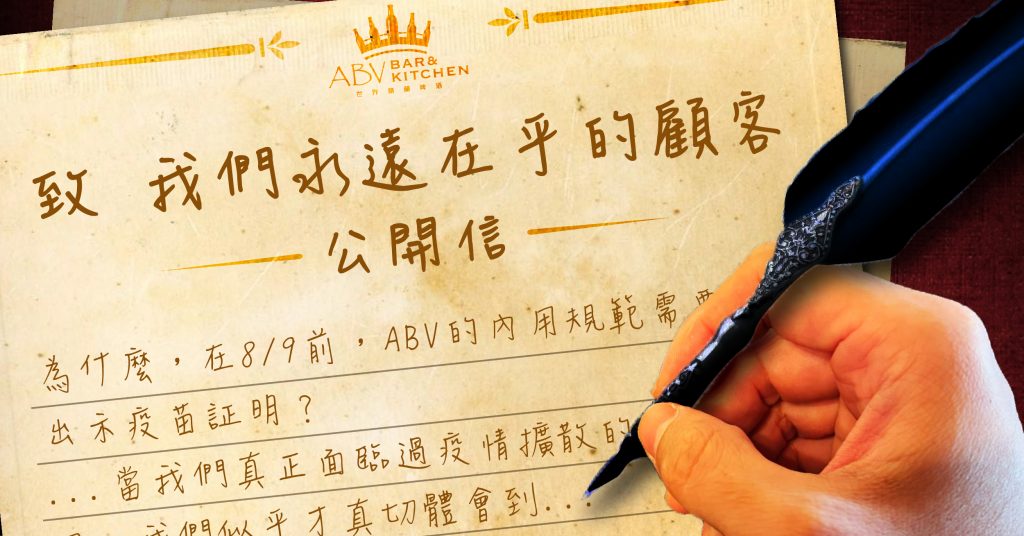 ABV BAR& KITCHEN
世界精釀啤酒
致 我們永遠在乎的顧客
公開信
為什麼，在8/9前，ABV的內用規範需要
出示疫苗証明？
...當我們真正面臨過疫情擴散的
我們似乎才真切體會到...